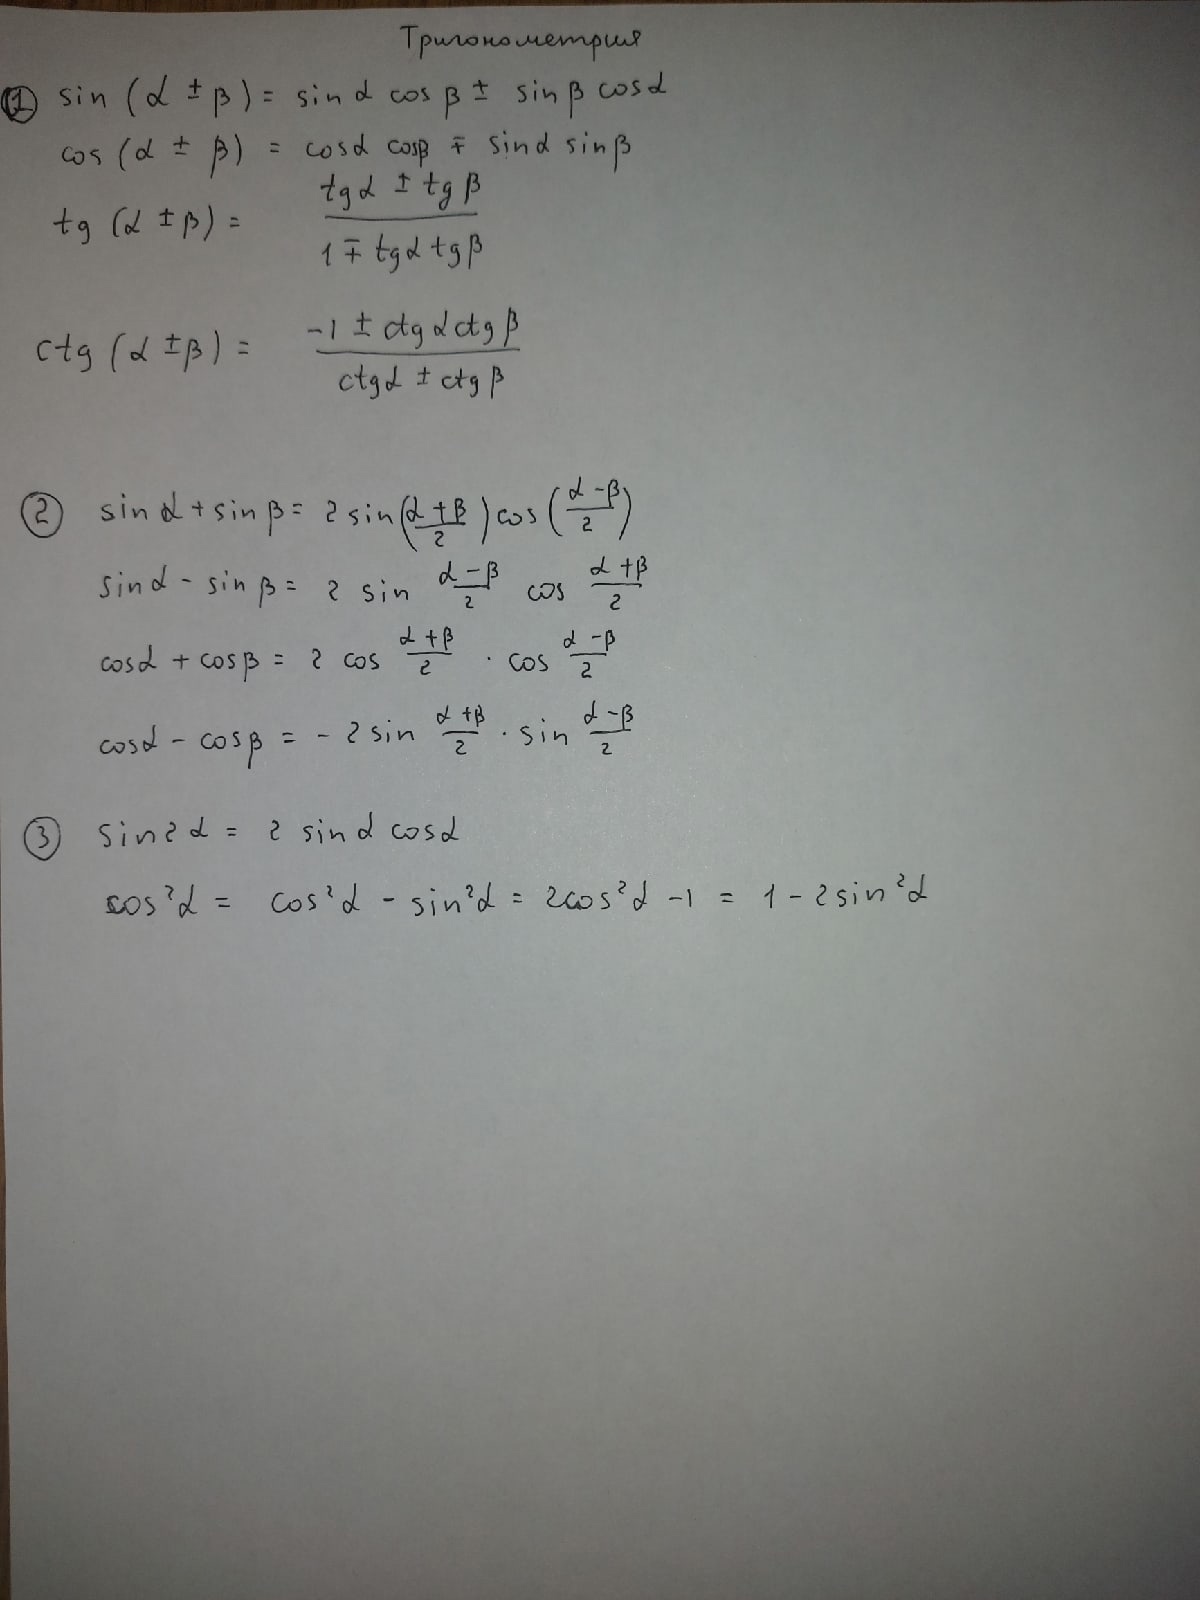 Тригонометрия
① sin (α ± β) = sin α cos β ± sin β cos α
cos (α ± β) = cosα cosβ ∓ sinα sinβ
tg (α ± β) = (tgα ± tgβ) / (1 ∓ tgα tgβ)
ctg (α ± β) = (-1 ± ctgα ctgβ) / (ctgα ± ctgβ)
② sin α + sin β = 2 sin((α + β)/2) cos((α - β)/2)
sin α - sin β = 2 sin (α - β)/2 cos (α + β)/2
cosα + cosβ = 2 cos (α + β)/2 · cos (α - β)/2
cosα - cosβ = - 2 sin (α + β)/2 · sin (α - β)/2
③ sin2α = 2 sin α cosα
cos²α = cos²α - sin²α = 2cos²α - 1 = 1 - 2sin²α